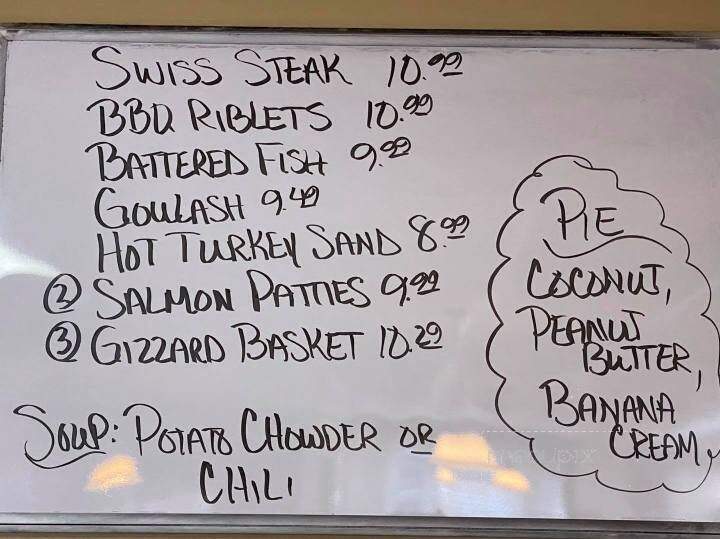 SWISS STEAK 10.99
BBQ RIBLETS 10.99
BATTERED FISH 9.99
GOULASH 9.49
HOT TURKEY SAND 8.99
② SALMON PATTIES 9.99
③ GIZZARD BASKET 10.29
SOUP: POTATO CHOWDER OR
CHILI
PIE
COCONUT,
PEANUT
BUTTER,
BANANA
CREAM,